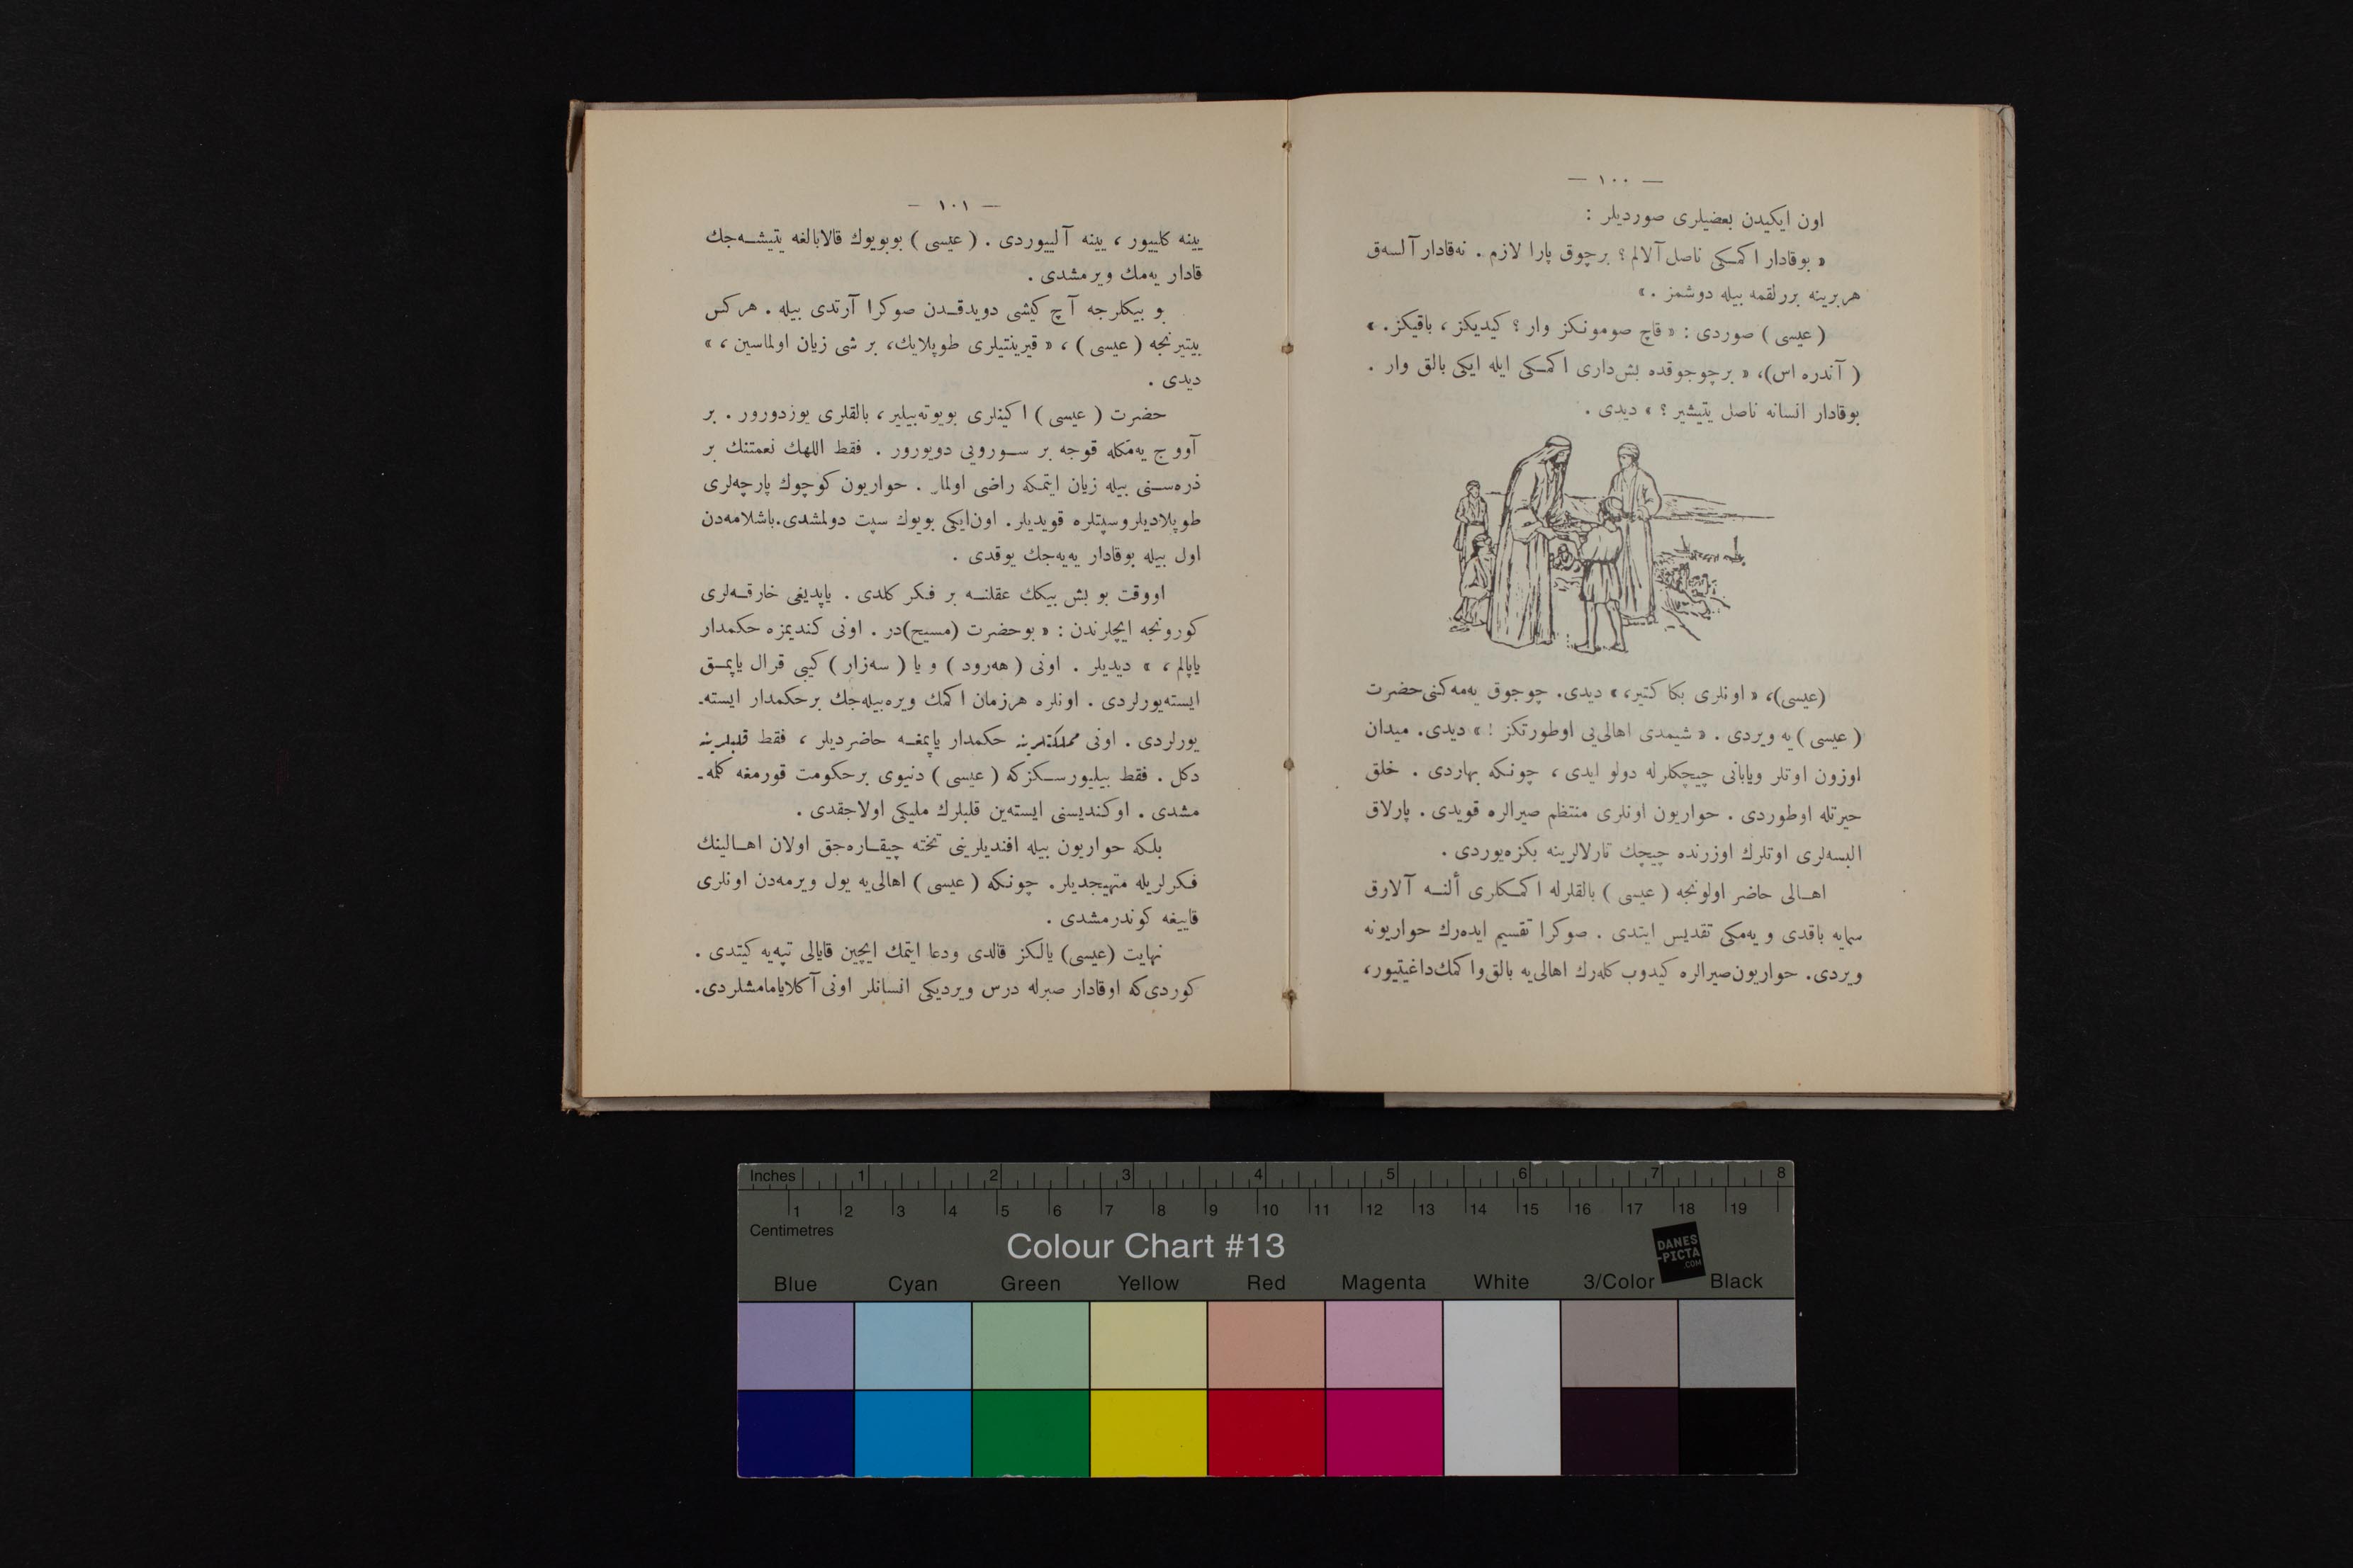 — ١٠٠ —
اون ایکیدن بعضیلری صوردیلر :
« بوقادار اكمـكی ناصل آلالم ؟ برچوق پارا لازم . نه‌قادار آلسه‌ق
هربرینه بررلقمه بیله دوشمز . »
( عیسی ) صوردی : « قاچ صومونـكز وار ؟ كیدیكز ، باقیكز . »
( آندره اس)، « برچوجوقده بش‌داری اكمـكی ایله ایكی بالق وار .
بوقادار انسانه ناصل یتیشیر ؟ » دیدی .
(عیسی)، « اونلری بكا كتیر، » دیدی. چوجوق یه‌مه‌كنی حضرت
( عیسی ) یه ویردی . « شیمدی اهالی‌یی اوطورتكز ! » دیدی. میدان
اوزون اوتلر ویابانی چیچكلرله دولو ایدی ، چونـكه بهاردی . خلق
حیرتله اوطوردی . حواریون اونلری منتظم صیرالره قویدی . پارلاق
البسه‌لری اوتلرك اوزرنده چیچك تارلالرینه بكزه‌یوردی .
اهـالی حاضر اولونجه ( عیسی ) بالقلرله اكمـكلری ألنـه آلارق
سمایه باقدی و یه‌مكی تقدیس ایتدی . صوكرا تقسیم ایده‌رك حواریونه
ویردی. حواریون‌صیرالره كیدوب كله‌رك اهالی‌یه بالق‌واكمك‌داغیتیور،
— ١٠١ —
یینه كلییور ، یینه آلییوردی . ( عیسی ) بوبویوك قالابالغه یتیشـه‌جك
قادار یه‌مك ویرمشدی .
بو بیكلرجه آچ كیشی دویدقـدن صوكرا آرتدی بیله . هركس
بیتیرنجه ( عیسی ) ، « قیرینتیلری طوپلایك، بر شی زیان اولماسین ، »
دیدی .
حضرت ( عیسی ) اكینلری بویوته‌بیلیر ، بالقلری یوزدورور . بر
آووج یه‌مكله قوجه بر سـورویی دویورور . فقط اللهك نعمتنك بر
ذره‌سـنی بیله زیان ایتمـكه راضی اولماز . حواریون كوچوك پارچه‌لری
طوپلادیلروسپتلره قویدیلر. اون‌ایكی بویوك سپت دولمشدی.باشلامه‌دن
اول بیله بوقادار یه‌یه‌جك یوقدی .
اووقت بو بش بیكك عقلنـه بر فـكر كلدی . یاپدیغی خارقـه‌لری
كورونجه ایچلرندن : « بوحضرت (مسیح)در . اونی كندیمزه حكمدار
یاپالم ، » دیدیلر . اونی ( هه‌رود ) و یا ( سه‌زار ) كیبی قرال یاپمـق
ایسته‌یورلردی . اونلره هرزمان اكمك ویره‌بیله‌جك برحكمدار ایسته‌ـ
یورلردی . اونی مملكتلرینه حكمدار یاپمغـه حاضردیلر ، فقط قلبلرینه
دكل . فقط بیلیورسـكزكه ( عیسی ) دنیوی برحكومت قورمغه كلمه‌ـ
مشدی . اوكندیسنی ایسته‌ین قلبلرك ملیكی اولاجقدی .
بلـكه حواریون بیله افندیلرینی تخته چیقـاره‌جق اولان اهـالینك
فـكرلریله متهیجدیلر. چونـكه ( عیسی ) اهالی‌یه یول ویرمه‌دن اونلری
قاییغه كوندرمشدی .
نهایت (عیسی) یالـكز قالدی ودعا ایتمك ایچین قایالی تپه‌یه كیتدی .
كوردی‌كه اوقادار صبرله درس ویردیكی انسانلر اونی آكلایامامشلردی.
Inches 1 2 3 4 5 6 7 8
1 2 3 4 5 6 7 8 9 10 11 12 13 14 15 16 17 18 19
Centimetres
Colour Chart #13
DANES
-PICTA
.COM
Blue Cyan Green Yellow Red Magenta White 3/Color Black